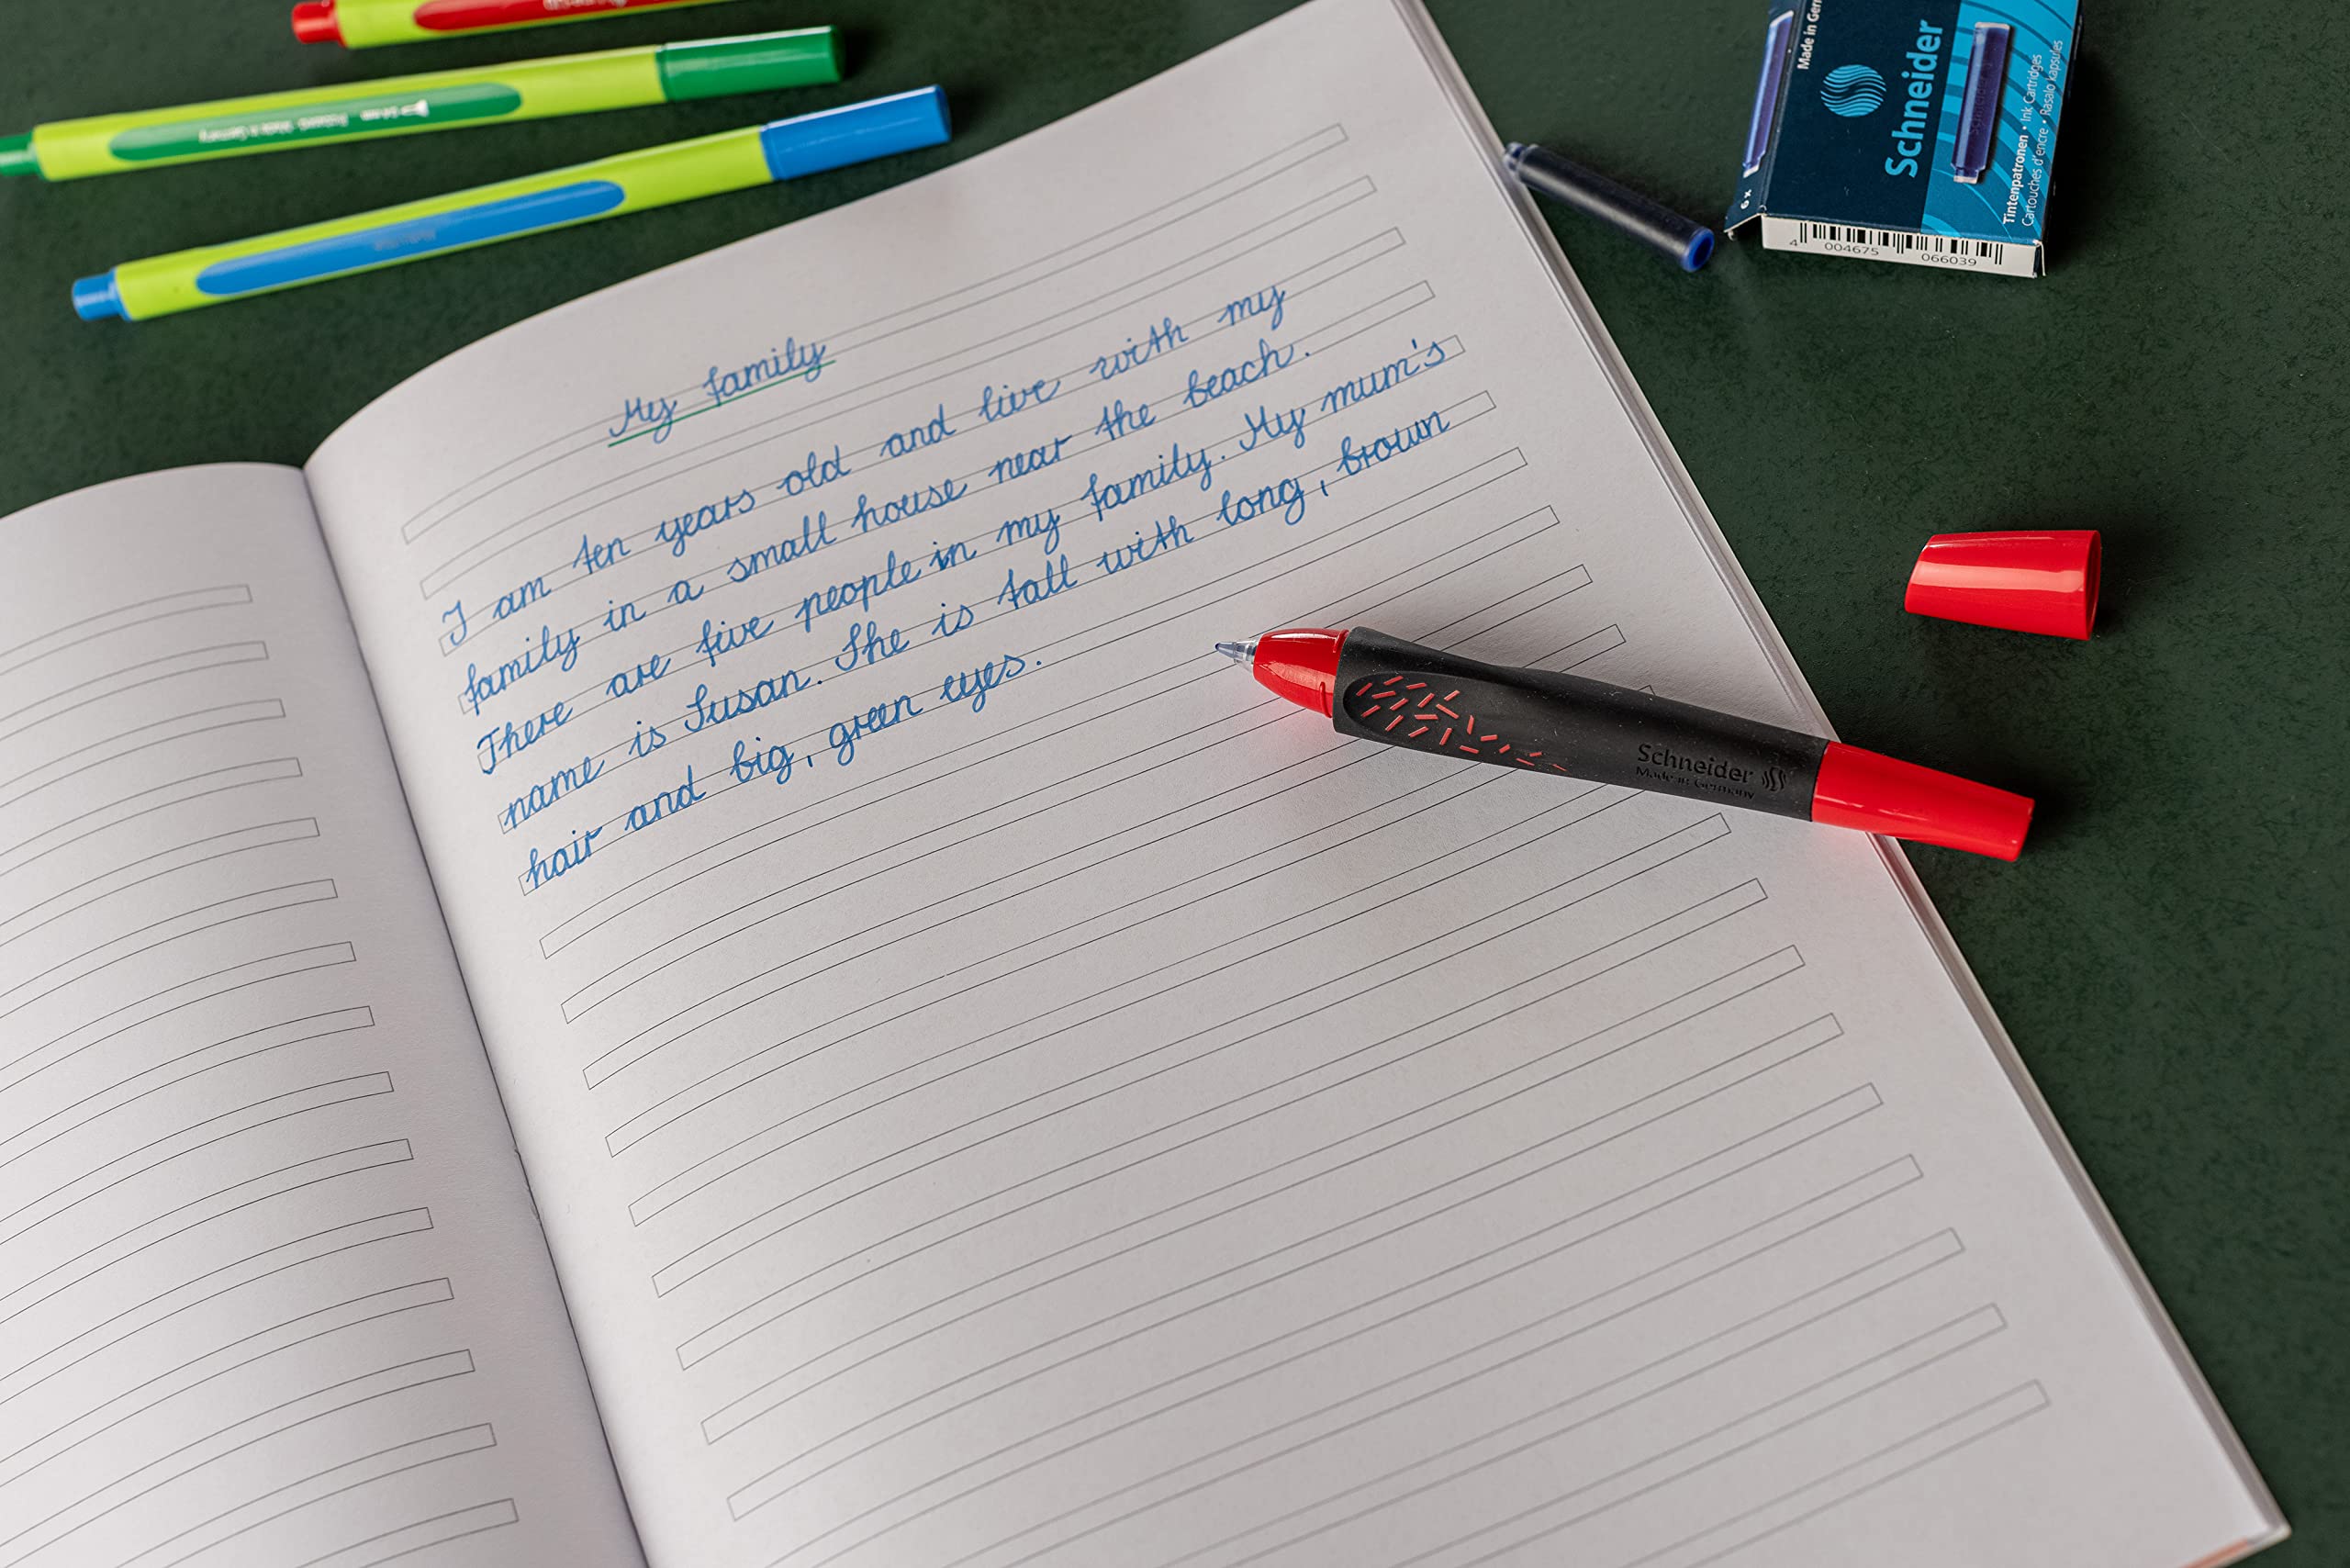 My family
I am ten years old and live with my
family in a small house near the beach.
There are five people in my family. My mum's
name is Susan. She is tall with long, brown
hair and big, green eyes.
Schneider
Made in Germany
Made in Ger
6x
Schneider
Tintenpatronen • Ink Cartridges
Cartouches d'encre • Rašalo kapsulės
4 004675 066039